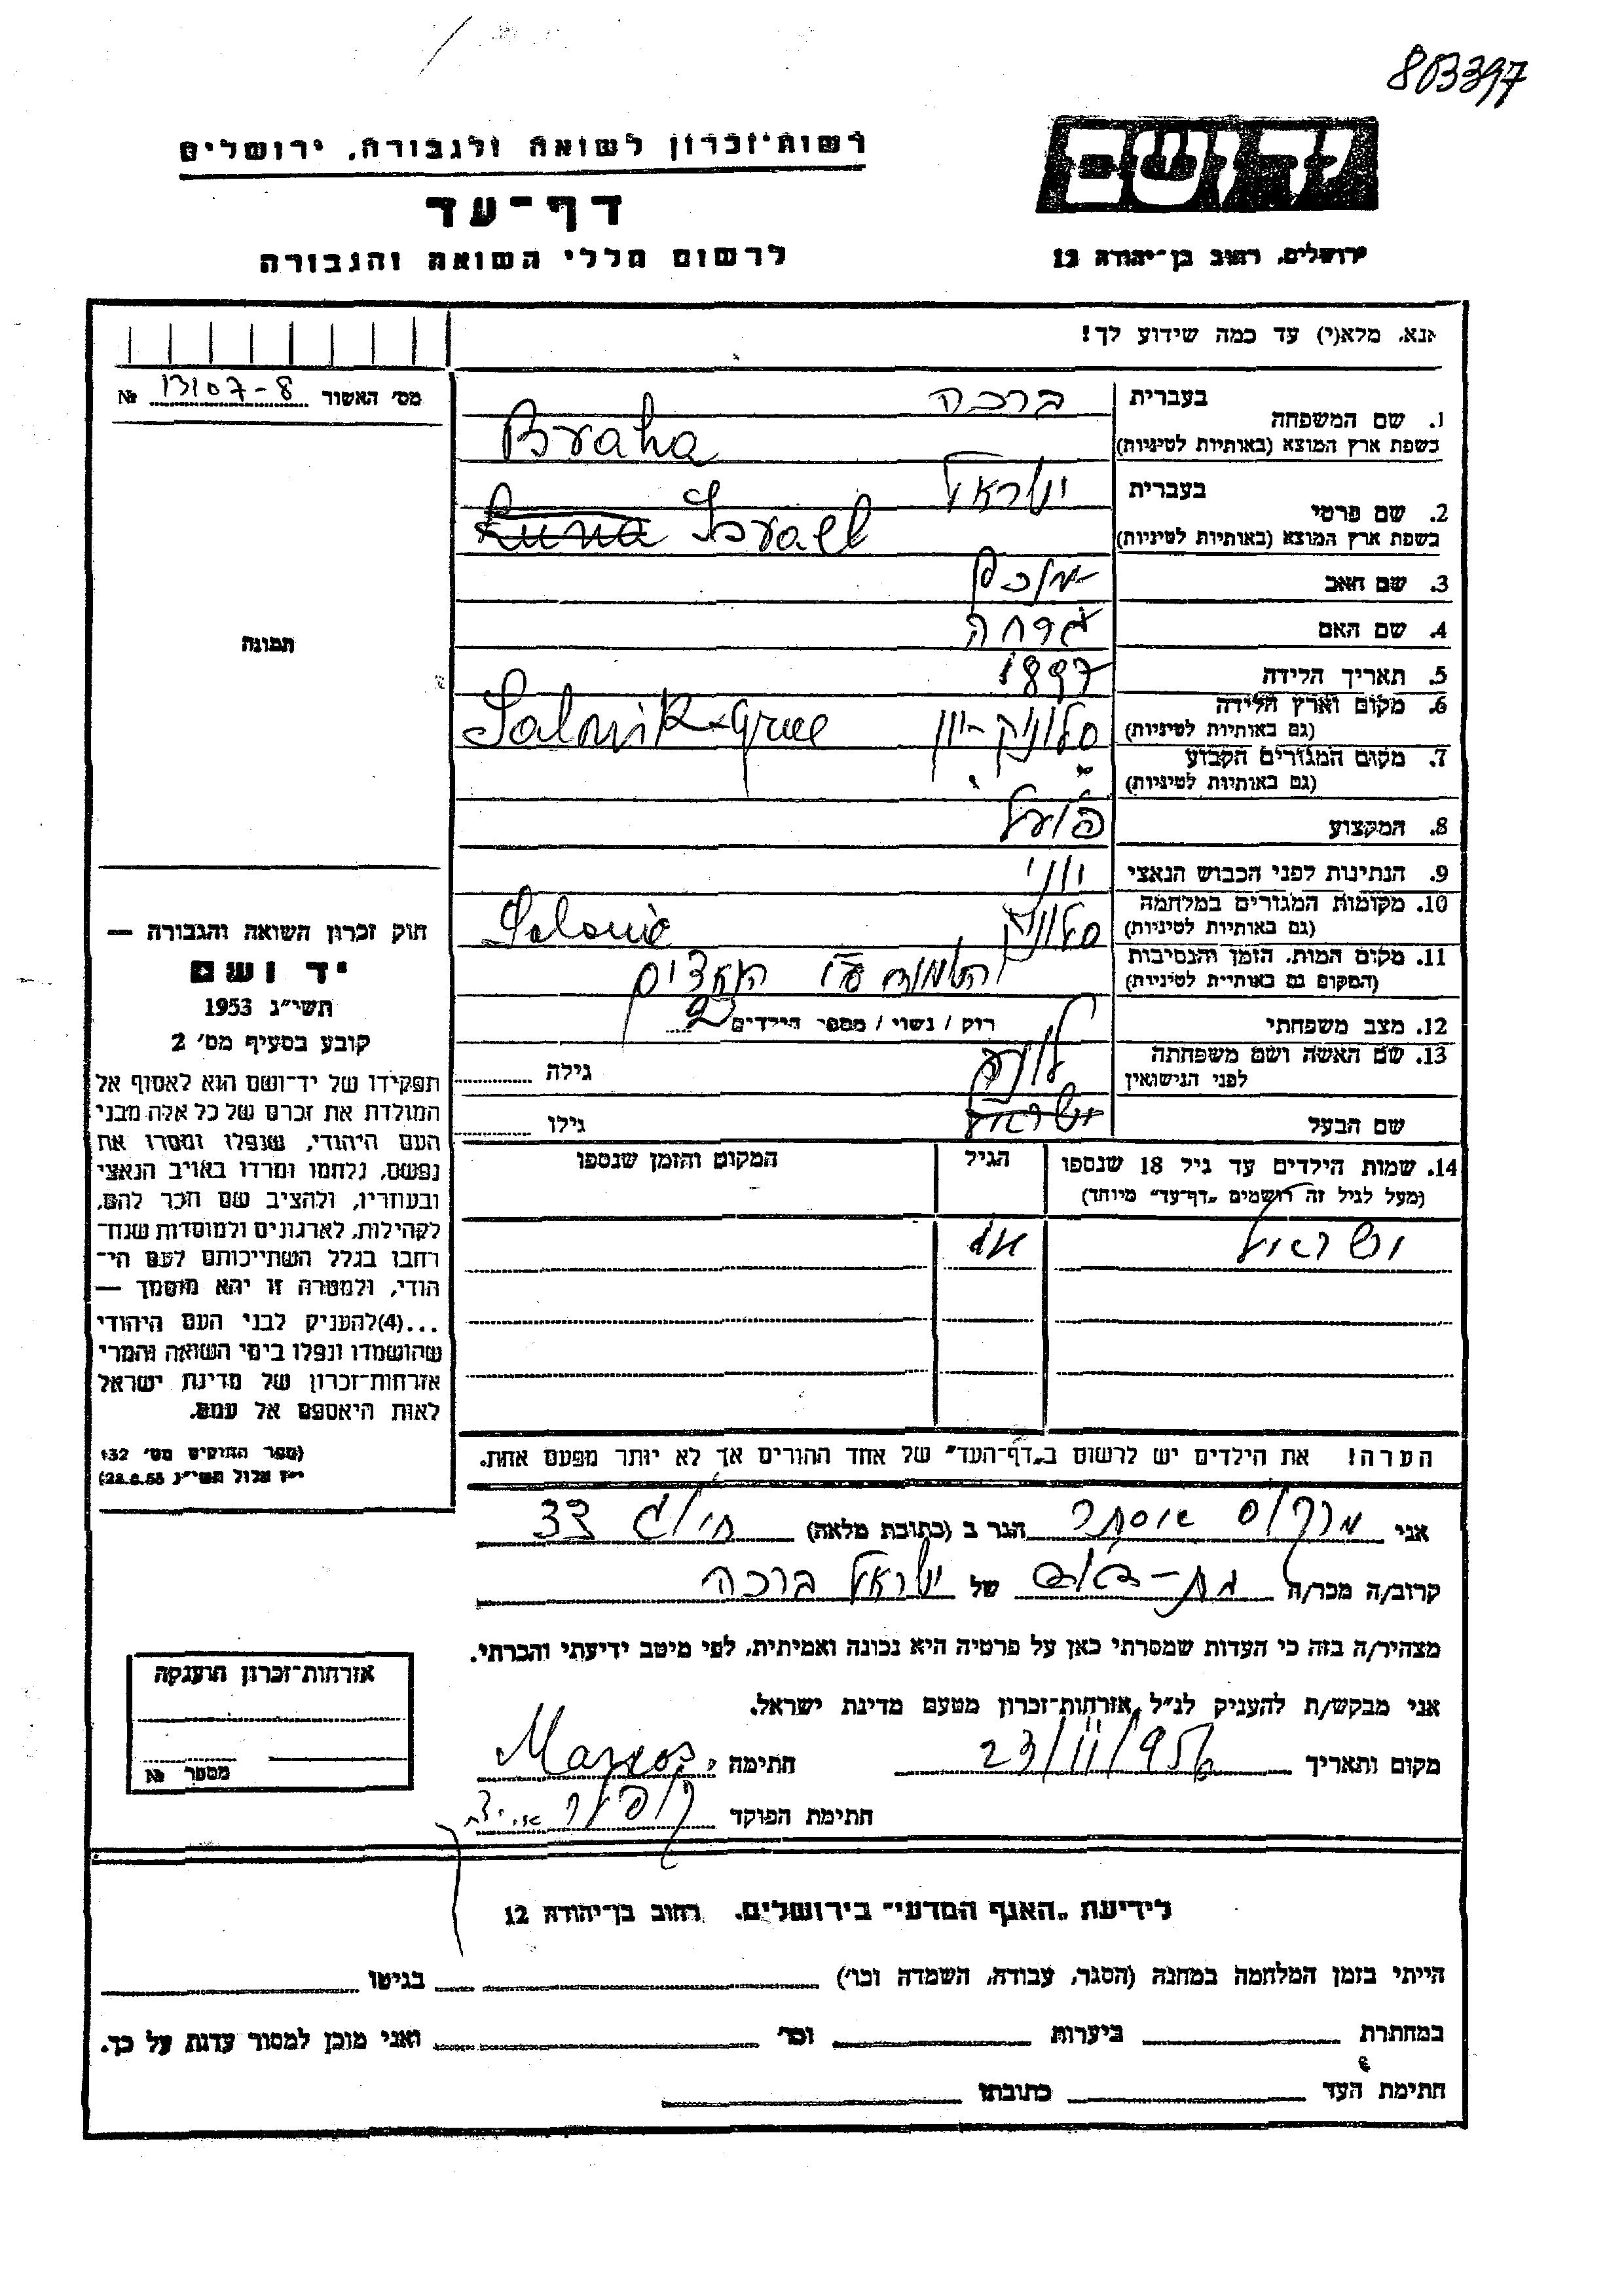 803397
רשות־זכרון לשואה ולגבורה, ירושלים
יד ושם
דף־עד
לרשום חללי השואה והגבורה
ירושלים, רחוב בן־יהודה 12
אנא, מלא(י) עד כמה שידוע לך!
מס׳ האשור 13107-8 №
1. שם המשפחה בעברית ברכה
בשפת ארץ המוצא (באותיות לטיניות) Braha
2. שם פרטי בעברית ישראל
בשפת ארץ המוצא (באותיות לטיניות) Luna Israel
3. שם האב
4. שם האם
5. תאריך הלידה 1897
6. מקום וארץ הלידה (גם באותיות לטיניות) סלוניק - יון Salonik - Grece
7. מקום המגורים הקבוע (גם באותיות לטיניות)
8. המקצוע פועל
9. הנתינות לפני הכבוש הנאצי יווני
10. מקומות המגורים במלחמה (גם באותיות לטיניות) סלוניק Salonic
11. מקום המות, הזמן והנסיבות (המקום גם באותיות לטיניות) הושמד ע״י הנאצים
12. מצב משפחתי רוק / נשוי / מספר הילדים 2
13. שם האשה ושם משפחתה לפני הנישואין גילה
שם הבעל ישראל גילו
14. שמות הילדים עד גיל 18 שנספו הגיל המקום והזמן שנספו
(מעל לגיל זה רושמים „דף־עד״ מיוחד)
ישראל
הערה! את הילדים יש לרשום ב„דף־העד״ של אחד ההורים אך לא יותר מפעם אחת.
תמונה
חוק זכרון השואה והגבורה —
יד ושם
תשי״ג 1953
קובע בסעיף מס׳ 2
תפקידו של יד־ושם הוא לאסוף אל
המולדת את זכרם של כל אלה מבני
העם היהודי, שנפלו ומסרו את
נפשם, נלחמו ומרדו באויב הנאצי
ובעוזריו, ולהציב שם וזכר להם,
לקהילות, לארגונים ולמוסדות שנח־
רחבו בגלל השתייכותם לעם הי־
הודי, ולמטרה זו יהא מוסמך —
...(4)להעניק לבני העם היהודי
שהושמדו ונפלו בימי השואה והמרי
אזרחות־זכרון של מדינת ישראל
לאות היאספם אל עמם.
(ספר החוקים מס׳ 132
י״ז אלול תשי״ג 28.8.53)
אני מרקוס אסתר הגר ב (כתובת מלאה) 33
קרוב/ה מכר/ה של ישראל ברכה
מצהיר/ה בזה כי העדות שמסרתי כאן על פרטיה היא נכונה ואמיתית, לפי מיטב ידיעתי והכרתי.
אני מבקש/ת להעניק לנ״ל אזרחות־זכרון מטעם מדינת ישראל.
מקום ותאריך 23/11/956 חתימה Marcos
חתימת הפוקד
אזרחות־זכרון הוענקה
מספר №
לידיעת „האגף המדעי״ בירושלים. רחוב בן־יהודה 12
הייתי בזמן המלחמה במחנה (הסגר, עבודה, השמדה וכו׳) בגיטו
במחתרת ביערות וכו׳ ואני מוכן למסור עדות על כך.
חתימת העד כתובתו